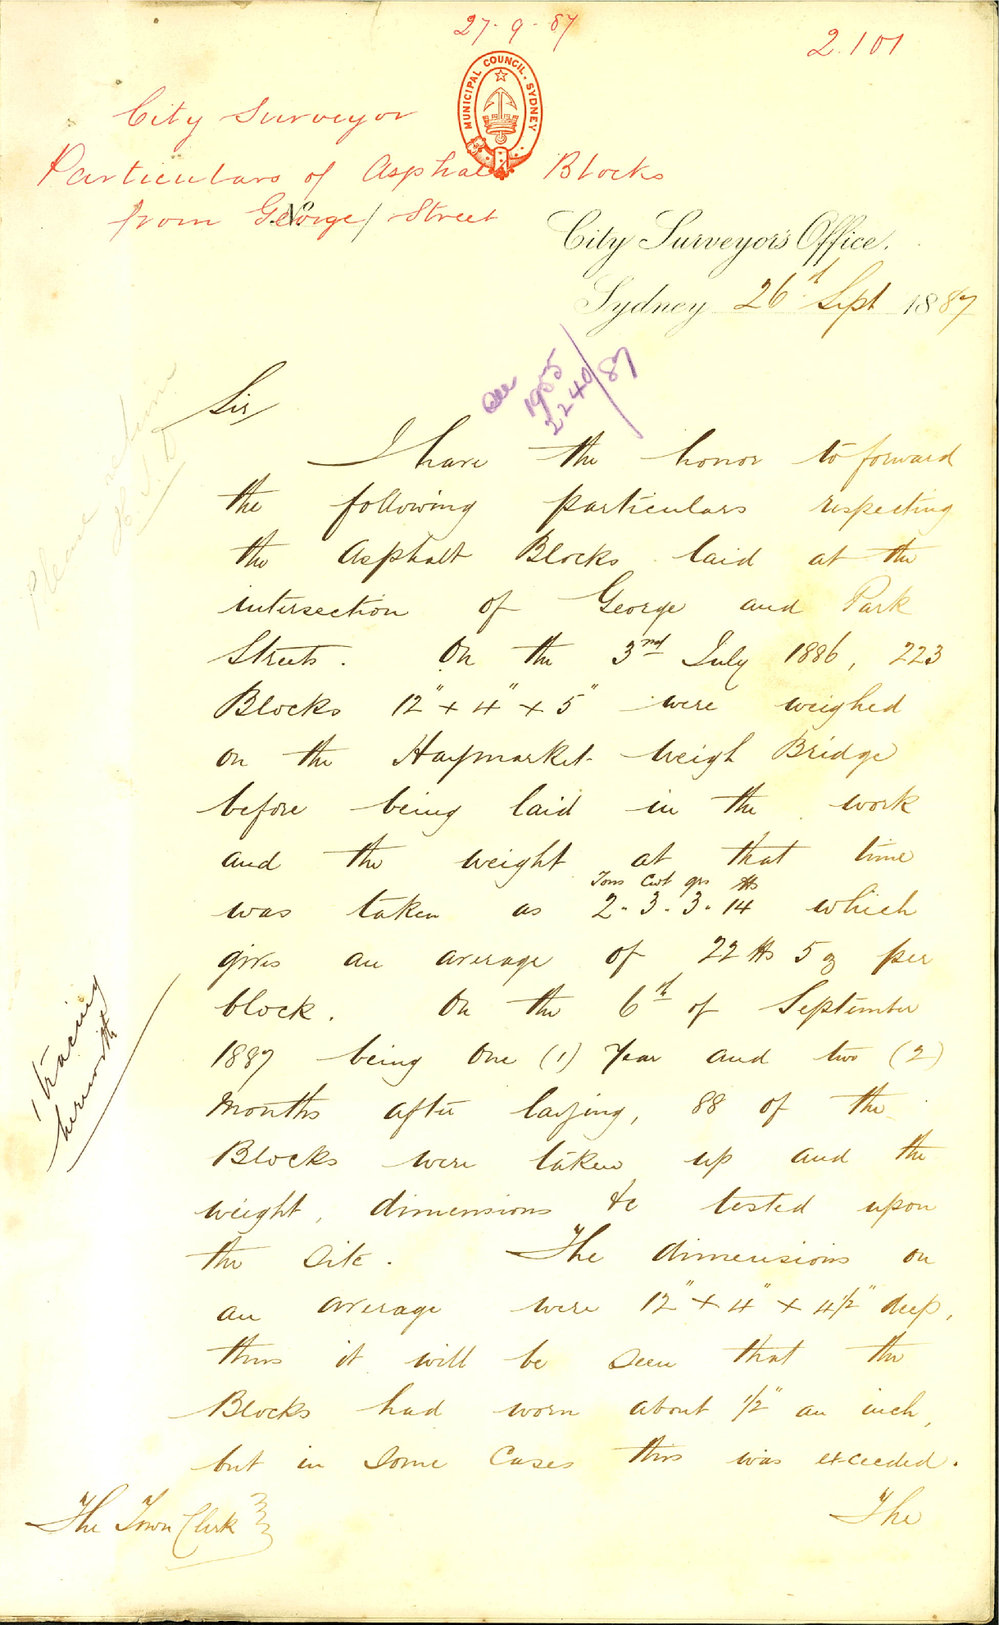 27-9-87
2101
MUNICIPAL COUNCIL. SYDNEY
City Surveyor
Particulars of Asphalt Blocks
from George Street
No.
City Surveyor's Office,
Sydney 26th Sept 1887
see 1955
2240/87
Sir/
Please return
I have the honor to forward
the following particulars respecting
the Asphalt Blocks laid at the
intersection of George and Park
Streets. On the 3rd July 1886, 223
Blocks 12" x 4" x 5" were weighed
on the Haymarket weigh Bridge
before being laid in the work
and the weight at that time
Tons Cwt qrs lbs
was taken as 2. 3. 3. 14 which
gives an average of 22 lbs 5 oz per
block. On the 6th of September
1887 being One (1) Year and two (2)
Months after laying, 88 of the
Blocks were taken up and the
weight, dimensions &c tested upon
the site. The dimensions on
an average were 12" x 4" x 4 1/2" deep,
thus it will be seen that the
Blocks had worn about 1/2" an inch,
but in some Cases this was exceeded.
1 tracing
herewith
The Town Clerk
The